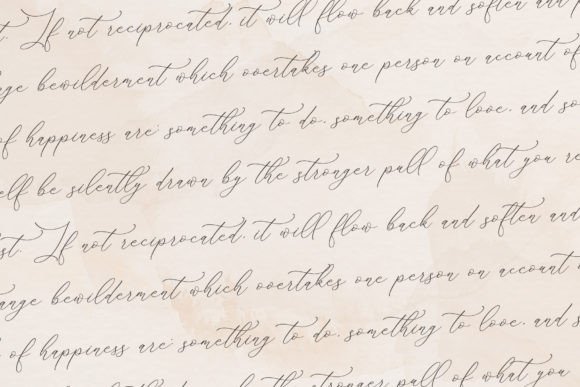 t. If not reciprocated, it will flow back and soften and p
nge bewilderment which overtakes one person on account of
of happiness are: something to do, something to love, and so
elf be silently drawn by the stronger pull of what you re
st. If not reciprocated, it will flow back and soften and
ange bewilderment which overtakes one person on account
of happiness are: something to do, something to love, and s
be silently drawn by the stronger pull of what you